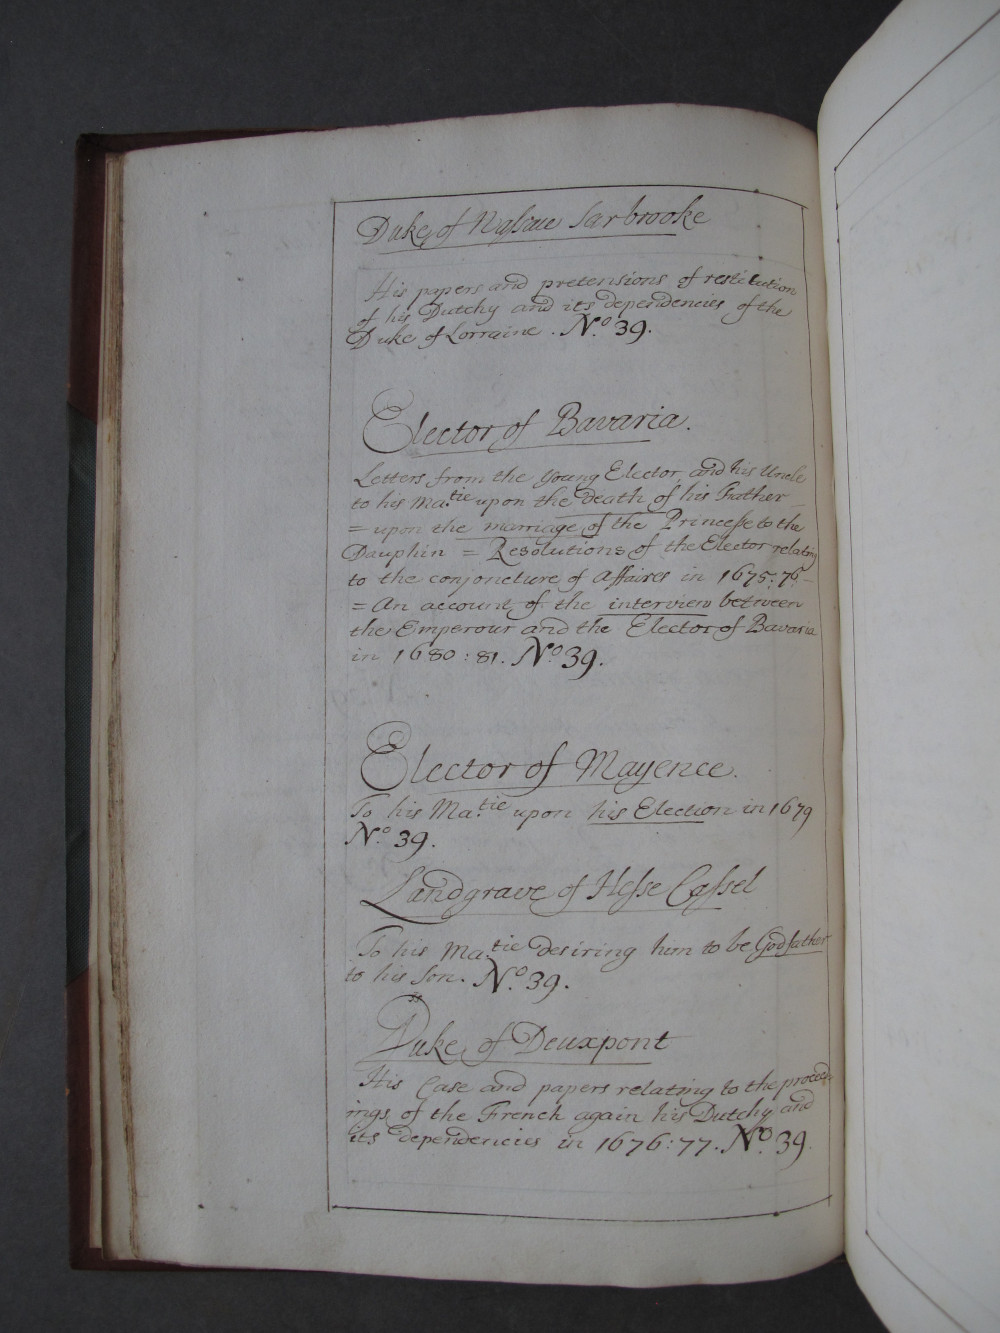 Duke of Naſsau Sarbrooke
His papers and pretensions of restitution
of his Dutchy and its dependencies of the
Duke of Lorraine. N.o 39.
Elector of Bavaria.
Letters from the young Elector, and his Uncle
to his Ma.tie upon the death of his Father
= upon the marriage of the Princeſse to the
Dauphin = Resolutions of the Elector relating
to the conjoncture of Affaires in 1675:76 –
= An account of the interview between
the Emperour and the Elector of Bavaria
in 1680:81. N.o 39.
Elector of Mayence.
To his Ma.tie upon his Election in 1679
N.o 39.
Landgrave of Heſse Caſsel
To his Ma.tie desiring him to be Godfather
to his Son. N.o 39.
Duke of Deuxpont
His Case and papers relating to the proceed-
ings of the French again his Dutchy and
its dependencies in 1676:77. N.o 39.